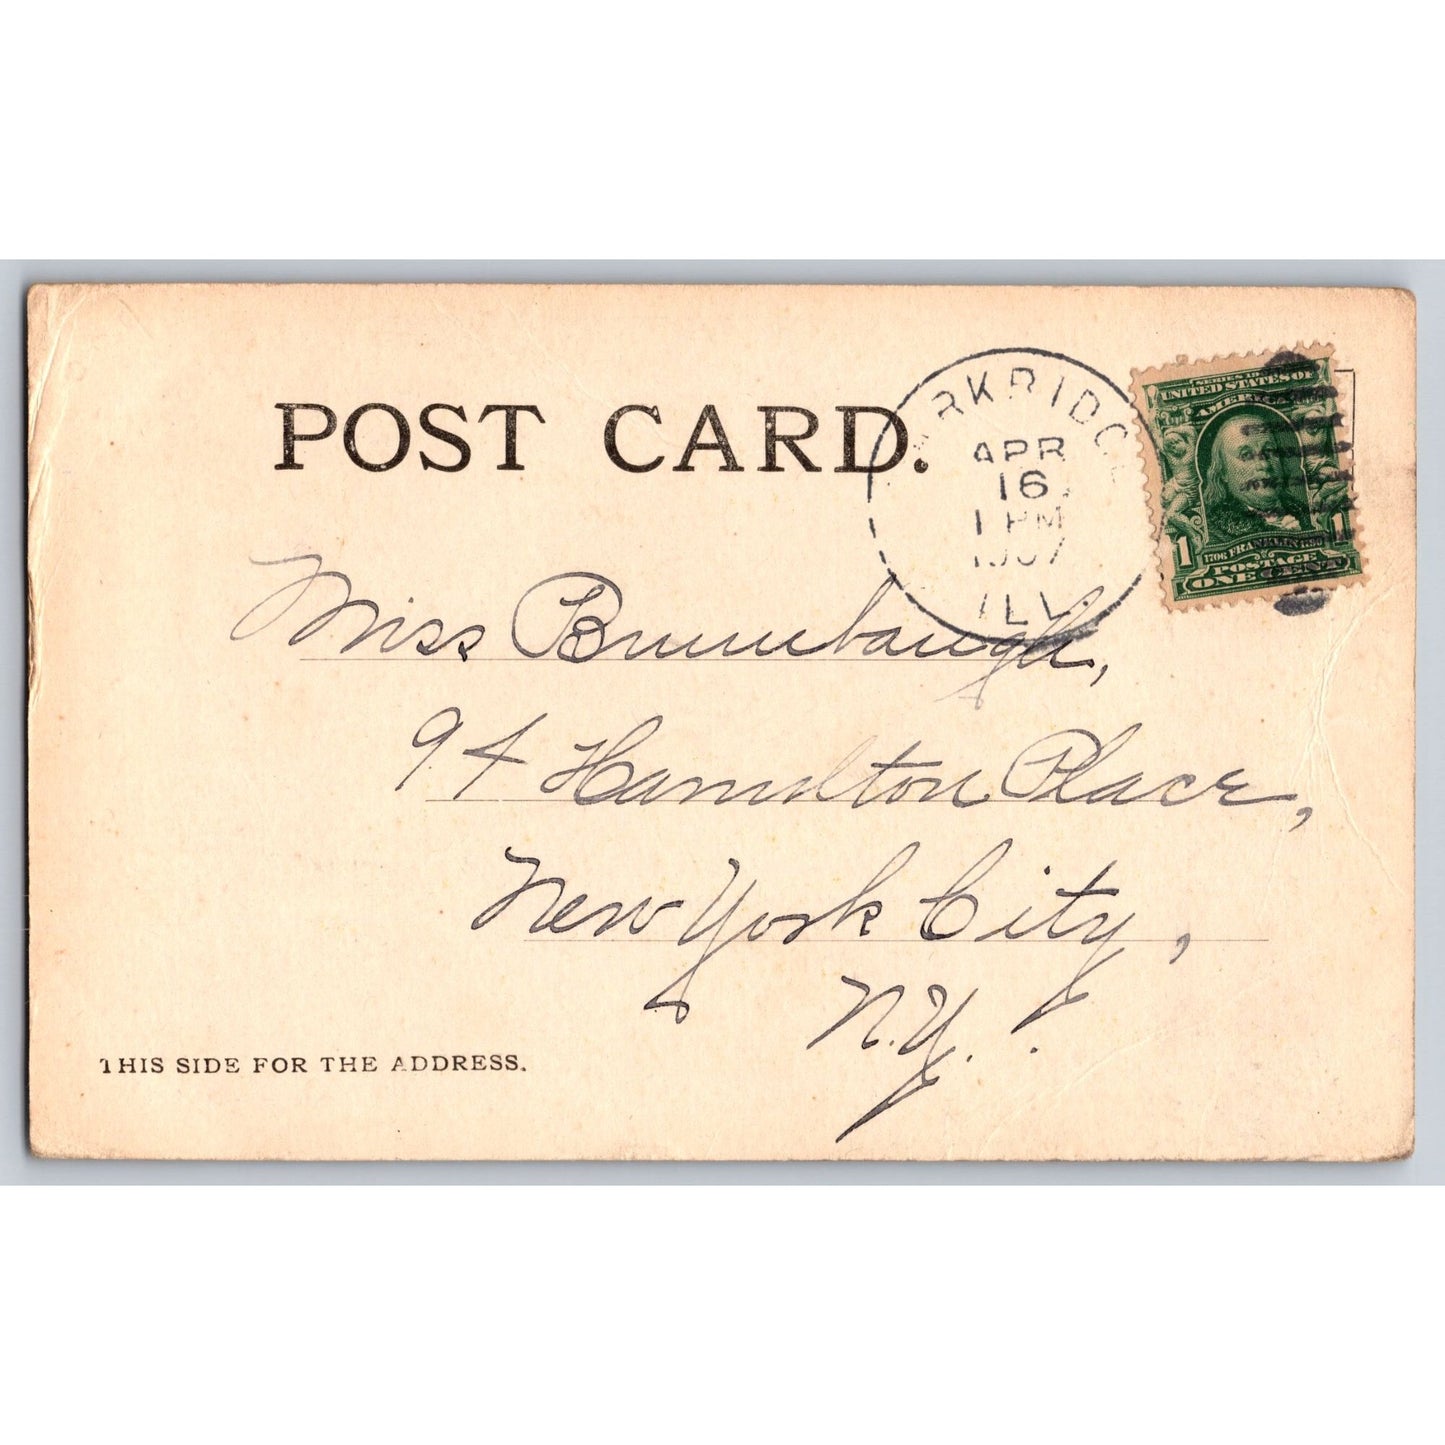 POST CARD.
ARKRIDG
APR
16
1 PM
1907
ILL.
SERIES 19
UNITED STATES OF
AMERI
1 1706 FRANKLIN 1790 1
POSTAGE
ONE CENT
Miss Brumbaugh,
94 Hamilton Place,
New York City,
N.Y.
THIS SIDE FOR THE ADDRESS.